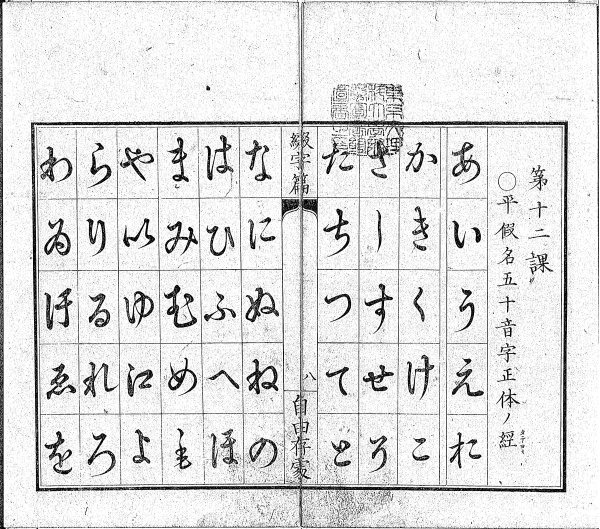 第十二課
○平假名五十音字正体ノ經
あいうえお
かきくけこ
さしすせそ
たちつてと
綴字篇
八
自由存家
なにぬねの
はひふへほ
まみむめも
や𛀆ゆ𛀁よ
らりるれろ
わゐ汙ゑを